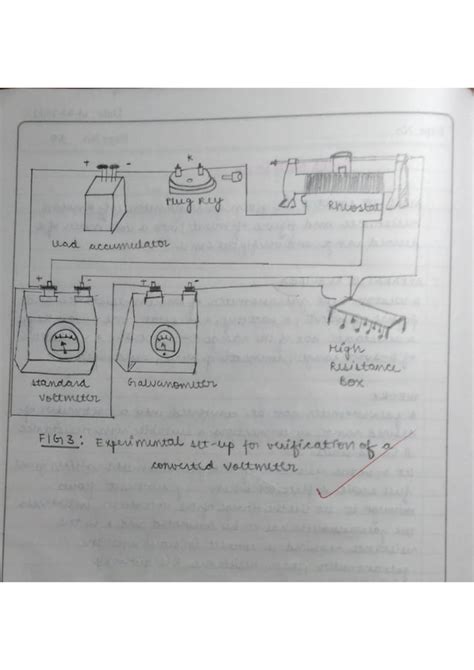 + -
K
Plug Key
Rheostat
Lead accumulator
+ -
+ -
Standard
voltmeter
Galvanometer
High
Resistance
Box
FIG 3: Experimental set-up for verification of a
converted voltmeter